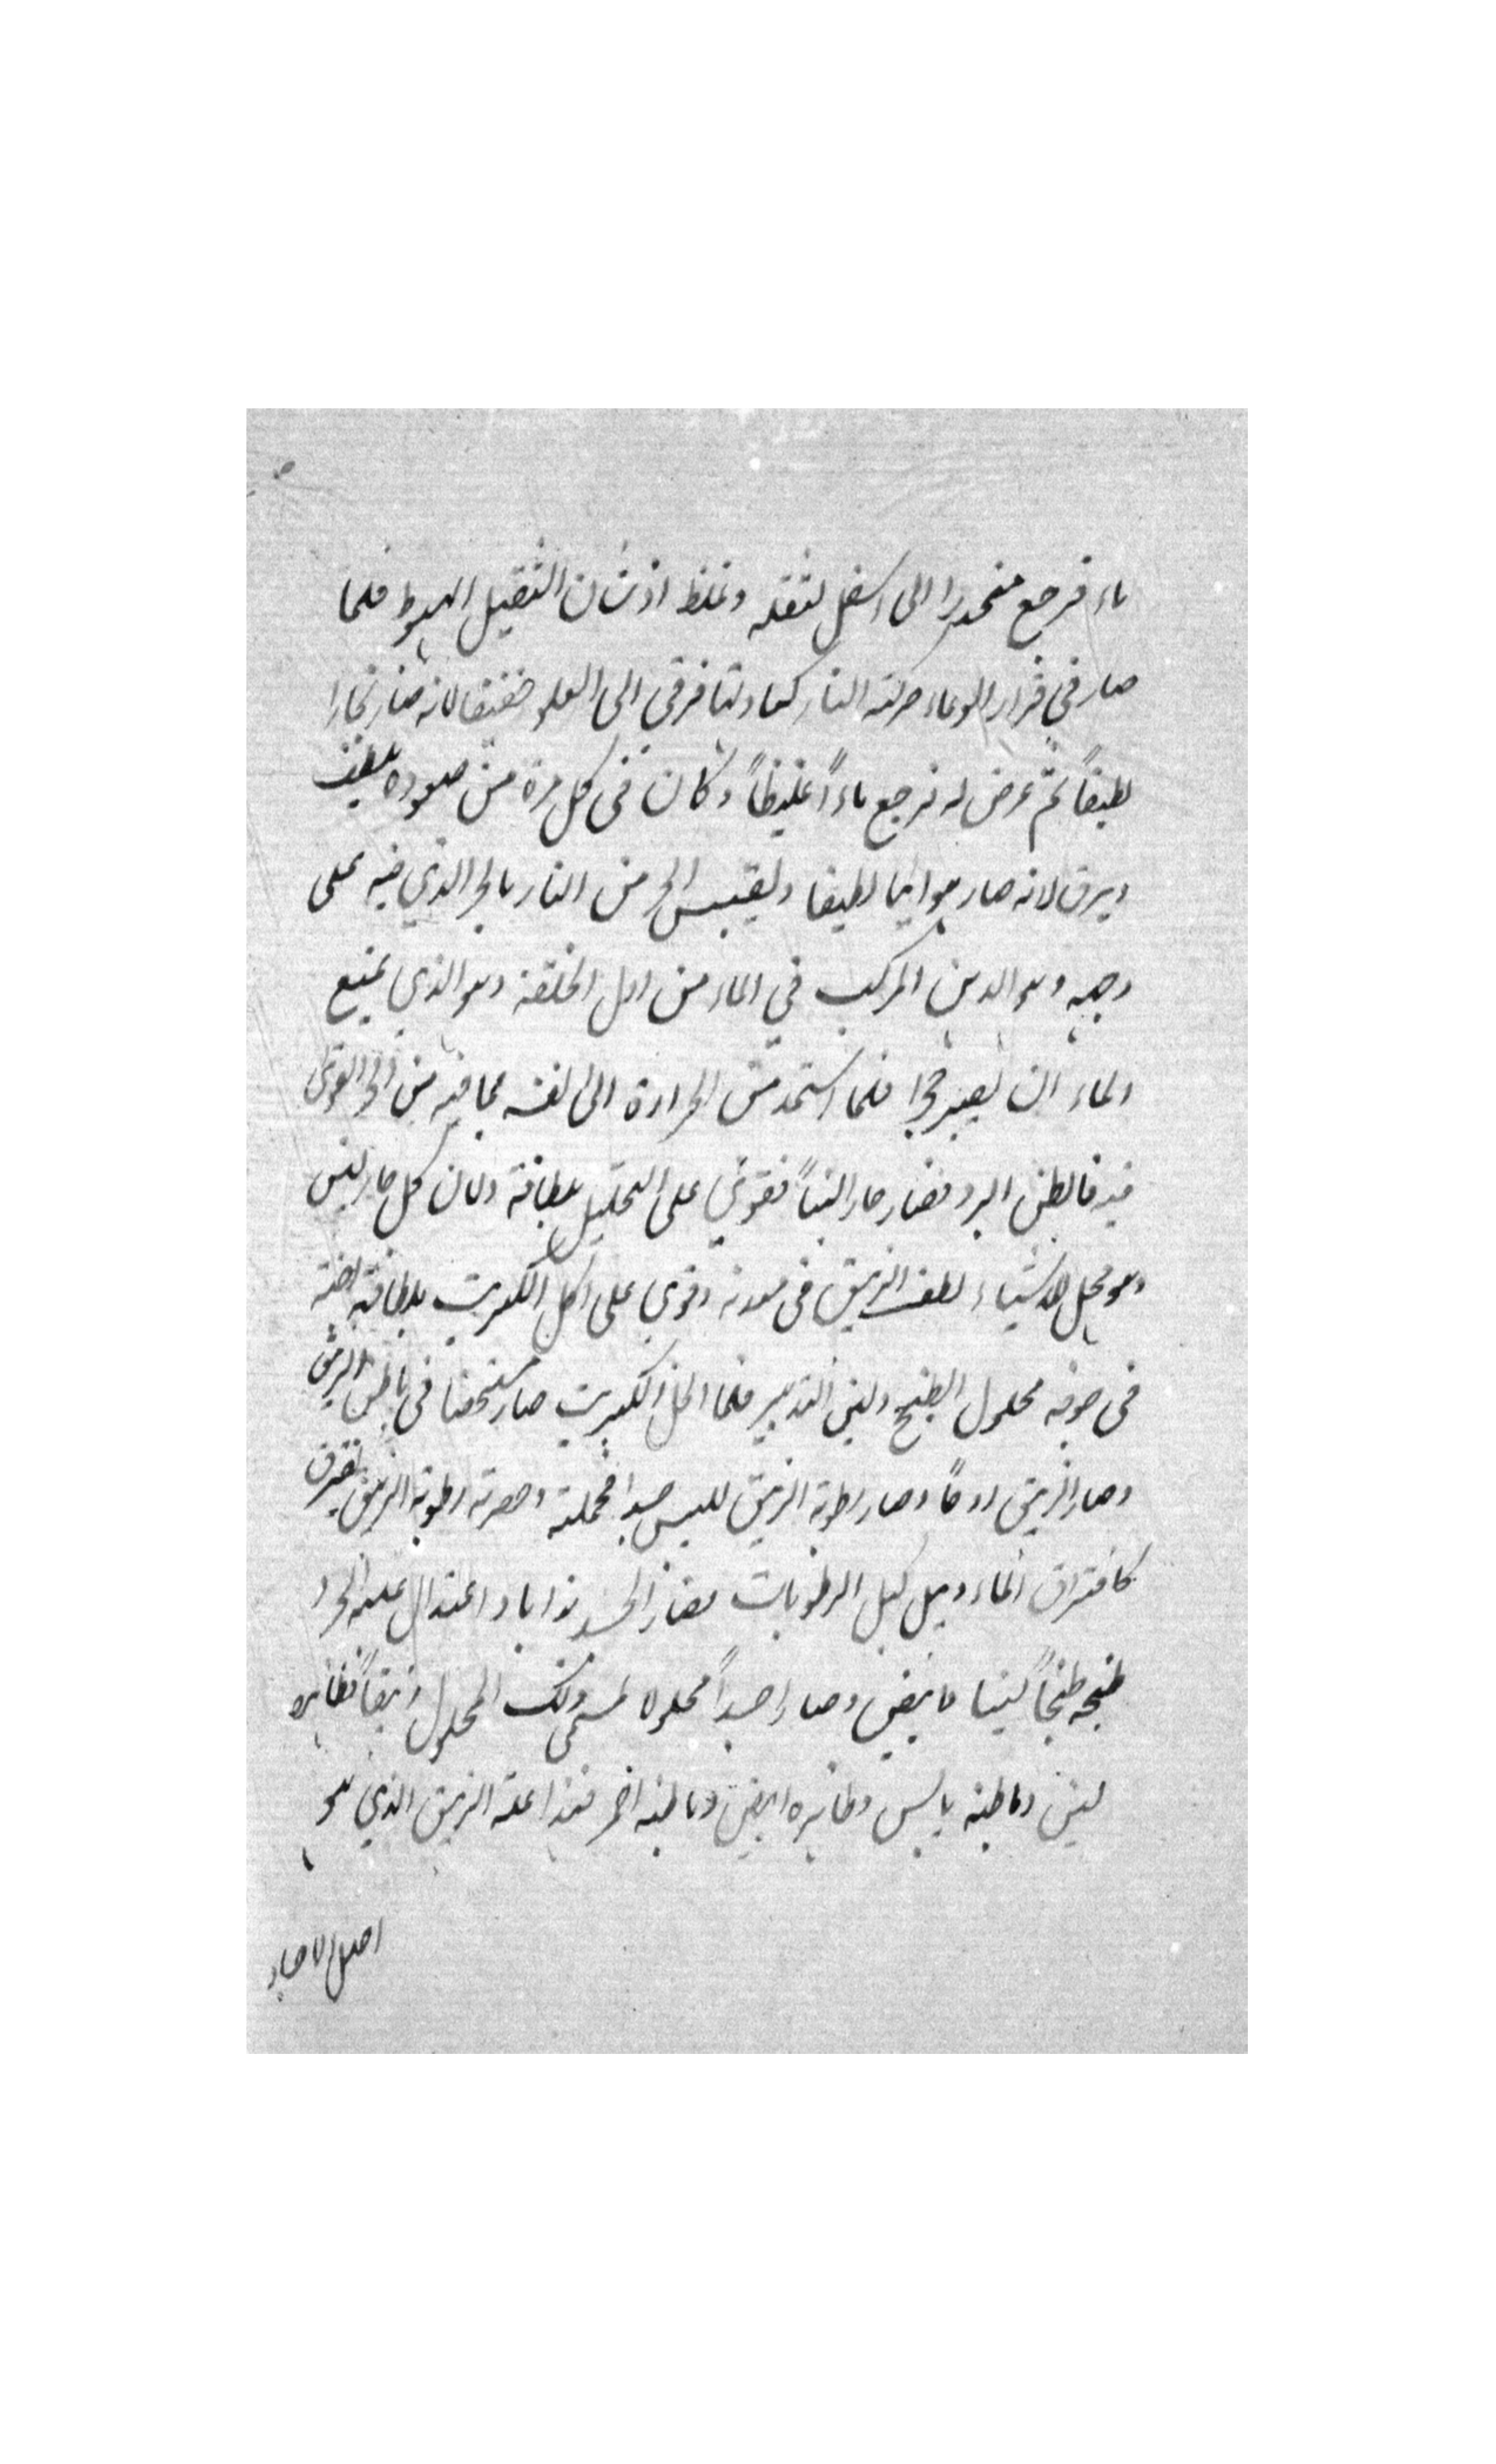 ماء فرجع منحدرا الى اسفل لثقله وغلظ اذ شان الثقيل الهبوط فلما
صار في قرار الوعاء حركته النار كعادتها فرقى الى العلو خفيفا لانه صار بخارا
لطيفاً ثم عرض له فرجع ماءً غليظاً وكان في كل مرة من صعوده يلطف
ويرق لانه صار هوائيا لطيفا ويقتبس الحر من النار بالحر الذي فيه على
وجهه وهو الدهن المركب في الماء من اول الخلقة وهو الذي يمنع
الماء ان يصير فجا فلما استمد من الحرارة الى نفسه بما فيه من الحر القوي
فيه فالطن البرد فصار حارا لينا فقوي على التحليل بلطافة ولان كل حار لين
وهو محل للاشياء لطف الزيبق في معدنه وقوي على اكل الكبريت بلطافته
في جوفه محلول الطبخ ولين التدبير فلما انحل الكبريت صار في باطن الزيبق
وصار الزيبق روحًا وصار رطوبة الزيبق لليبس جسدا فحملته وحصرته رطوبة الزيبق
كافتراق الماء وبل كل الرطوبات فصار الجسد ذوابا واعتدال عليه الحر و
طبخه طبخاً لينا فابيض وصار جسداً محلولا لمسمى ذلك المحلول زيبقاً فظاهره
لين وباطنه يابس وظاهره ابيض وباطنه احمر فهذا علة الزيبق الذي هو
اصل الاجساد